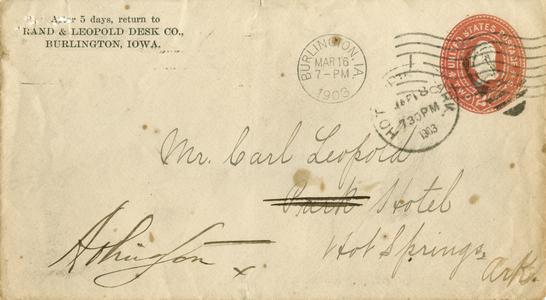 After 5 days, return to
RAND & LEOPOLD DESK CO.,
BURLINGTON, IOWA.
BURLINGTON, IA.
MAR 16
7-PM
1903
UNITED STATES POSTAGE
HOT
ARK.
730PM
1903
Mr. Carl Leopold
Park Hotel
Hot Springs,
Ark.
Arlington x